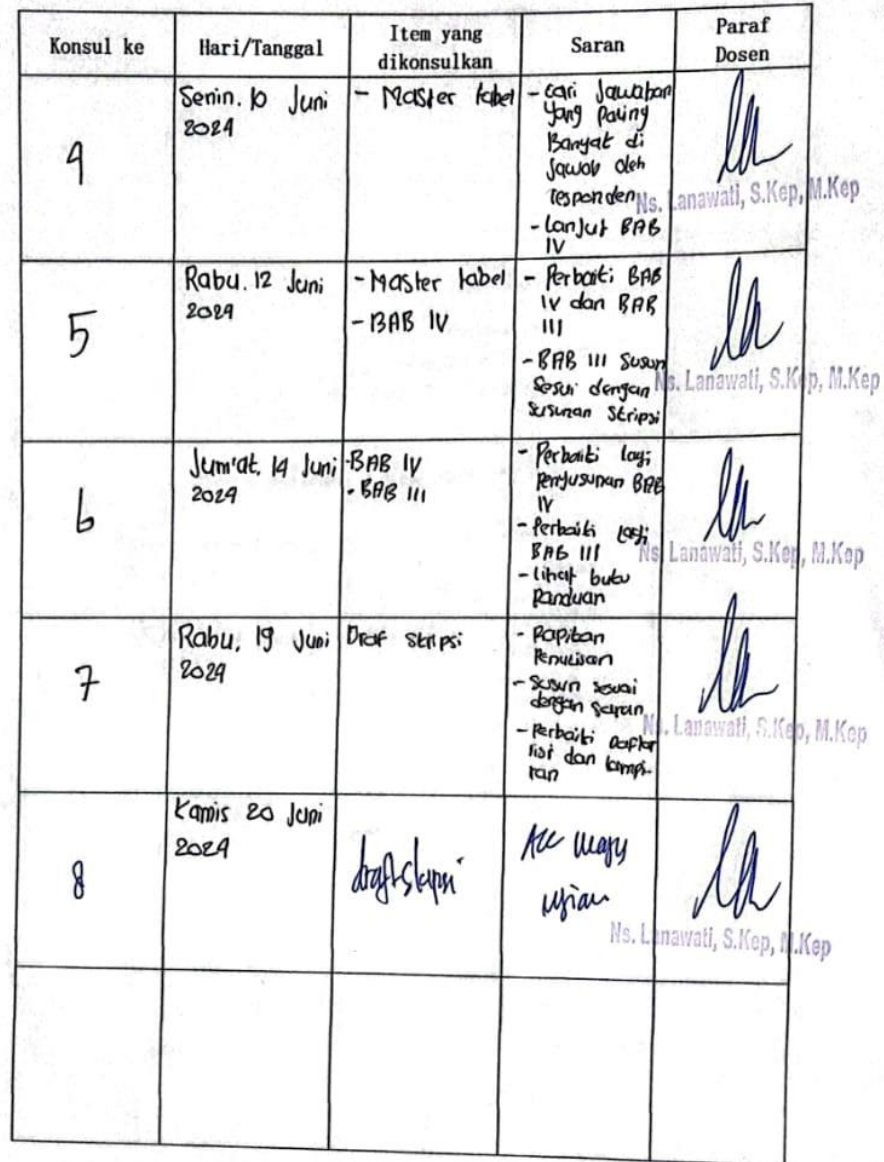 Konsul ke
Hari/Tanggal
Item yang
dikonsulkan
Saran
Paraf
Dosen
4
Senin. 10 Juni
2024
- Master tabel
- Cari Jawaban
yang Paling
Banyak di
Jawab oleh
responden
- Lanjut BAB
IV
Ns. Lanawati, S.Kep, M.Kep
5
Rabu. 12 Juni
2024
- Master tabel
- BAB IV
- Perbaiki BAB
IV dan BAB
III
- BAB III Susun
Sesui dengan
Susunan Skripsi
Ns. Lanawati, S.Kep, M.Kep
6
Jum'at. 14 Juni
2024
- BAB IV
- BAB III
- Perbaiki lagi
Penyusunan BAB
IV
- Perbaiki lagi
BAB III
- Lihat buku
Panduan
Ns. Lanawati, S.Kep, M.Kep
7
Rabu, 19 Juni
2024
Draf Skripsi
- Rapikan
Penulisan
- Susun sesuai
dengan saran
- Perbaiki Daftar
isi dan lampi-
ran
Ns. Lanawati, S.Kep, M.Kep
8
Kamis 20 Juni
2024
draft Skripsi
Acc maju
ujian
Ns. Lanawati, S.Kep, M.Kep